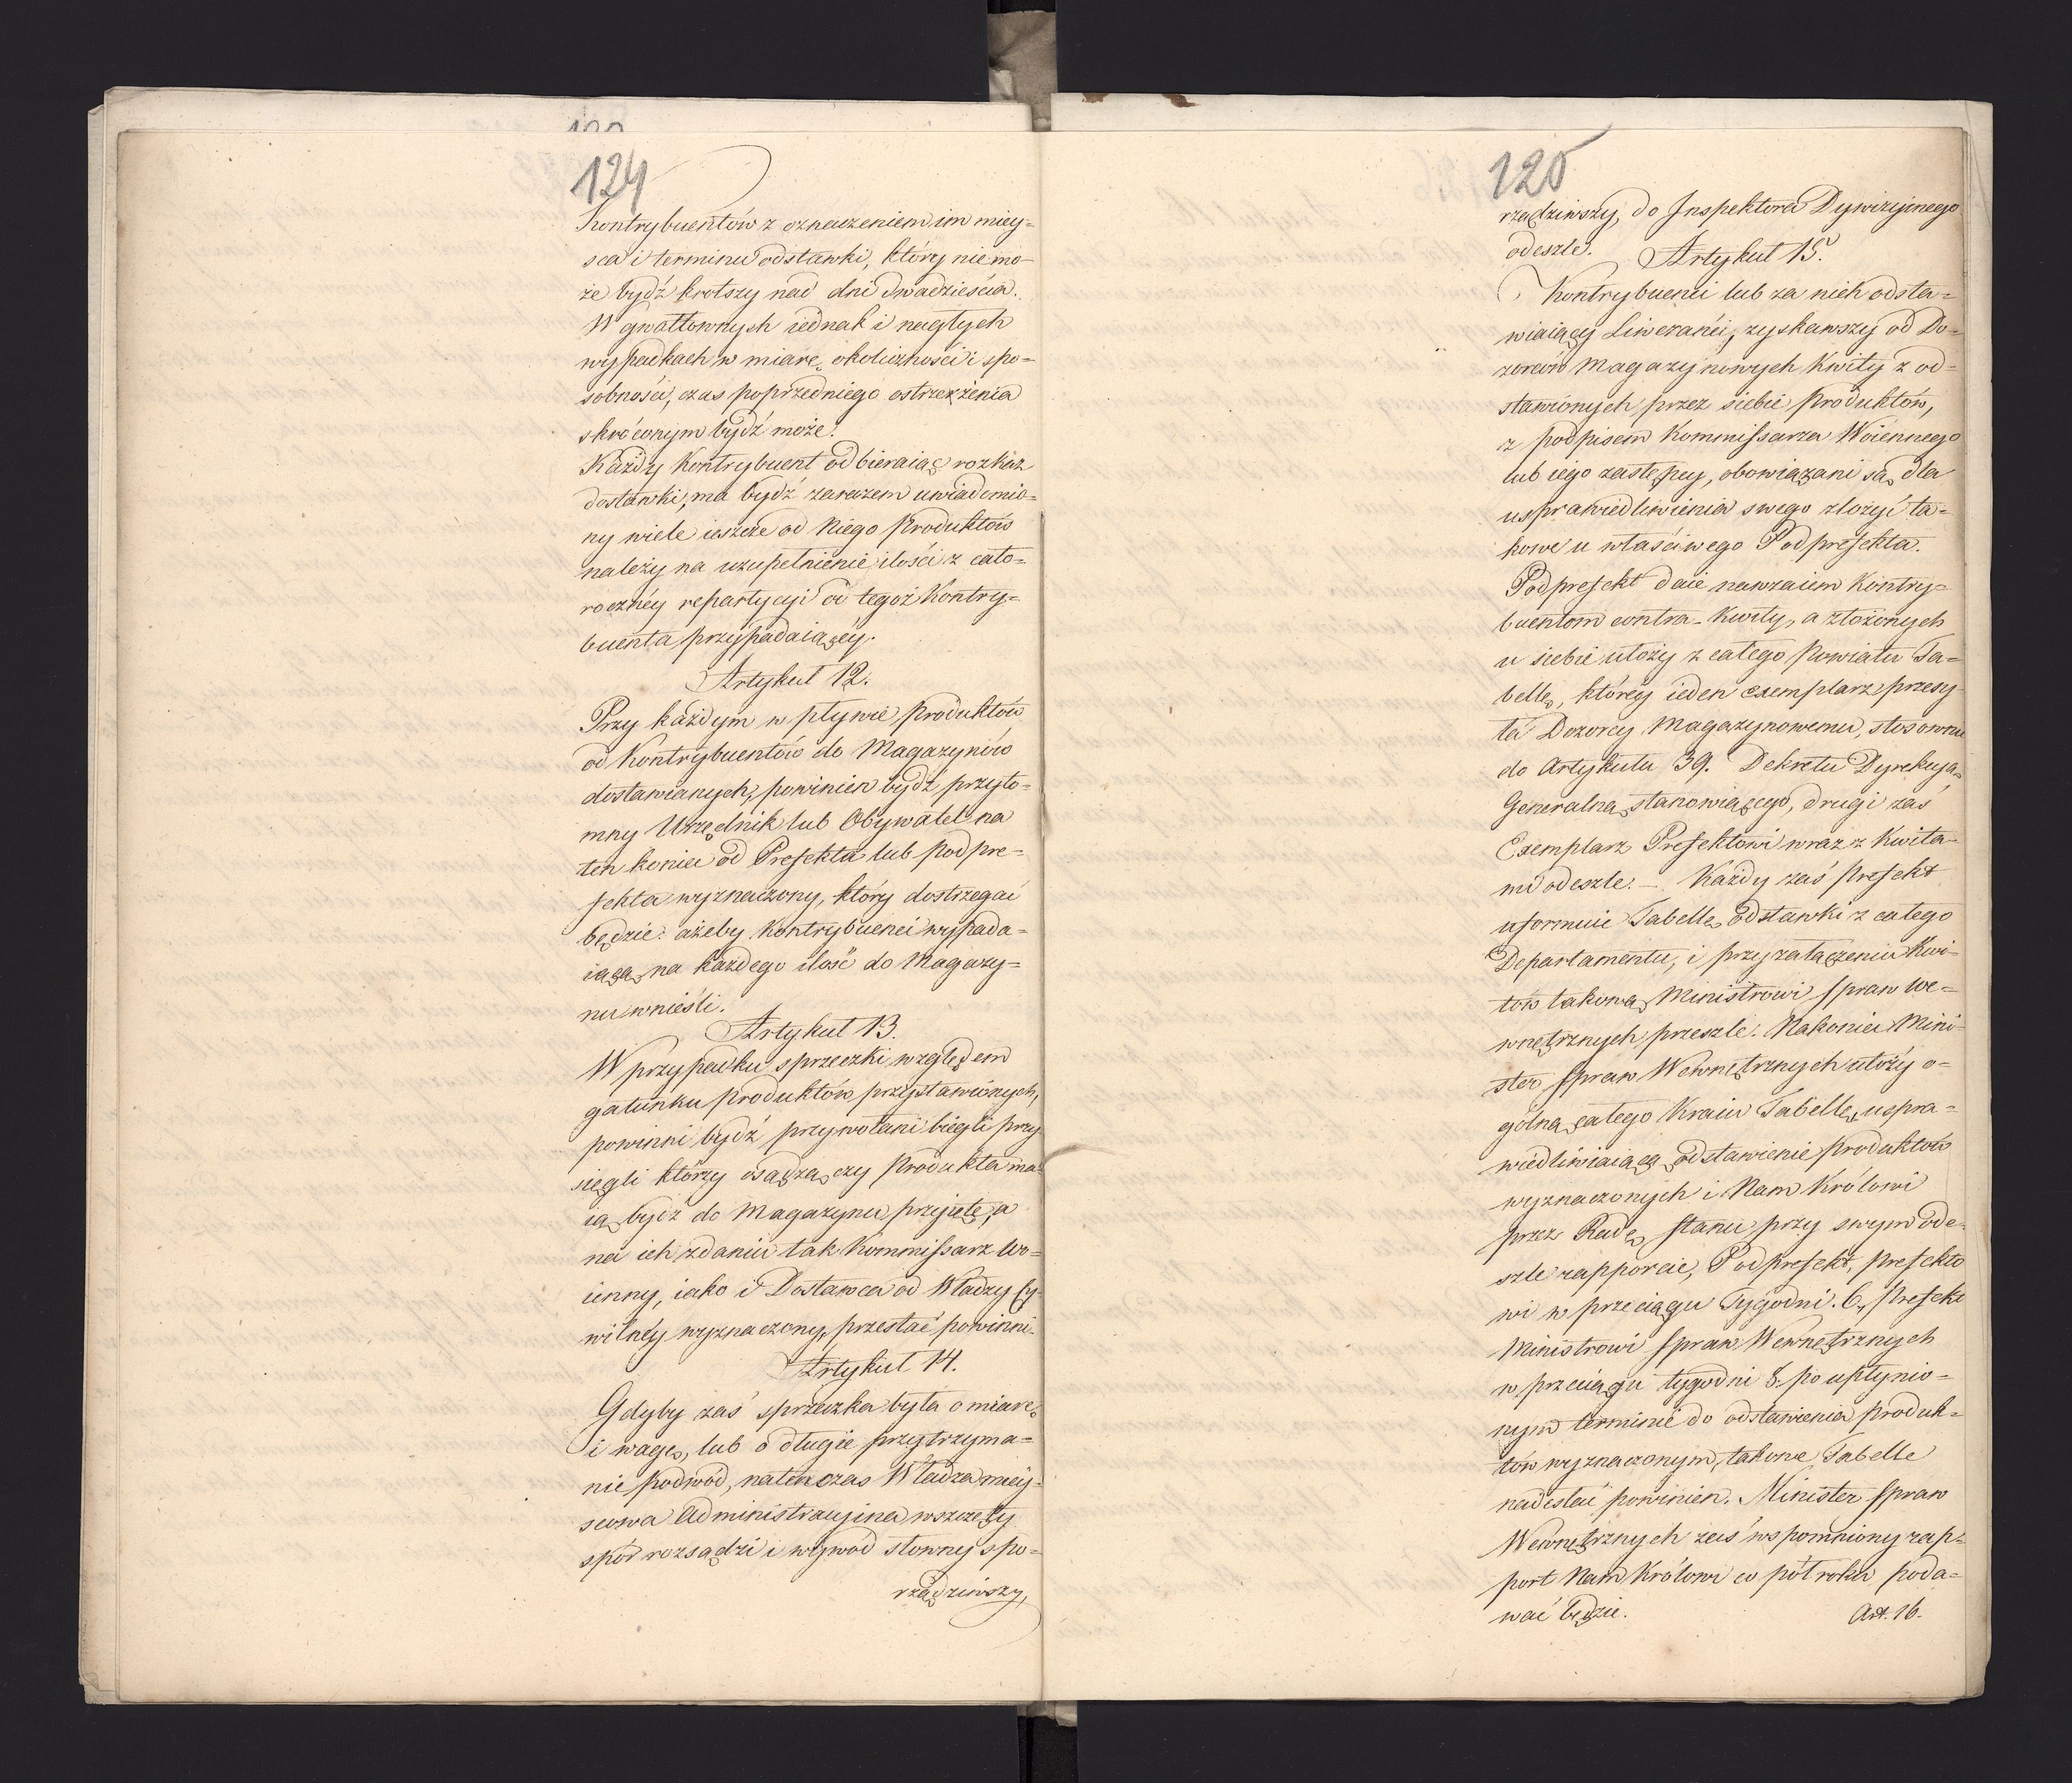 124
Kontrybuentów z oznaczeniem im miey=
sca i terminu odstawki, który nie mo-
że bydź krotszy nad dni dwadzieścia.
W gwałtownych iednak i nagłych
wypadkach w miarę okoliczności i spo=
sobności, czas poprzedniego ostrzeżenia
skróconym bydź może.
Każdy Kontrybuent odbieraiąc rozkaz
dostawki, ma bydź zarazem uwiadomio=
ny wiele ieszcze od Niego Produktów
należy na uzupełnienie ilości z cało=
rocznéy repartycyi od tegoż Kontry=
buenta przypadaiącéy.
Artykuł 12.
Przy każdym wpływie produktów
od Kontrybuentów do Magazynów
dostawianych, powinien bydź przyto=
mny Urzędnik lub Obywatel na
ten koniec od Prefekta lub Podpre=
fekta wyznaczony, który dostrzegać
będzie: ażeby Kontrybuenci wypada=
iącą na każdego ilość do Magazy=
nu wnieśli.
Artykuł 13.
W przypadku sprzeczki względem
gatunku produktów przystawionych,
powinni bydź przywołani biegli przy
sięgli którzy osądzą czy Produkta ma=
ią bydź do Magazynu przyięte, a
na ich zdaniu tak Kommissarz Wo=
ienny, iako i Dostawca od Władzy Cy=
wilnéy wyznaczony, przestać powinni.
Artykuł 14.
Gdyby zaś sprzeczka była o miarę
i wagę, lub o długie przytrzyma=
nie podwód, natenczas Władza miey=
scowa Administracyina wszczęty
spór rozsądzi i wywód słowny spo=
rządziwszy,
125
rządziwszy, do Inspektora Dywizyinego
odeszle.
Artykuł 15.
Kontrybuenci lub za nich odsta=
wiaiący Liweranci, zyskawszy od Do=
zorców Magazynowych Kwity z od=
stawionych przez siebie produktów,
z podpisem Kommissarza Woiennego
lub iego zastępcy, obowiązani są dla
usprawiedliwienia swego złożyć ta=
kowe u właściwego Podprefekta.
Podprefekt daie nawzaiem Kontry=
buentom contra-Kwity, a złożonych
u siebie ułoży z całego Powiatu Ta=
bellę, któréy ieden exemplarz przesy
ła Dozorcy Magazynowemu, stosownie
do Artykułu 39. Dekretu Dyrekcyą
Generalną stanowiącego, drugi zaś
Exemplarz Prefektowi wraz z Kwita
mi odeszle. — Każdy zaś Prefekt
uformuie Tabellę Odstawki z całego
Departamentu, i przy załączeniu Kwi=
tów takową Ministrowi Spraw We=
wnętrznych przeszle. Nakoniec Mini=
ster Spraw Wewnętrznych ułoży o=
gólną całego Kraiu Tabellę, uspra=
wiedliwiaiącą odstawienie produktów
wyznaczonych i Nam Królowi
przez Radę Stanu przy swym ode=
szle rapporcie, Podprefekt, Prefekto
wi w przeciągu Tygodni. 6, Prefekt
Ministrowi Spraw Wewnętrznych
w przeciągu tygodni 8. po upłynio=
nym terminie do odstawienia produk=
tów wyznaczonym, takowe Tabelle
nadesłać powinien. Minister Spraw
Wewnętrznych zaś wspomniony rap=
port Nam Królowi co pół roku poda=
wać będzie.
Art. 16.